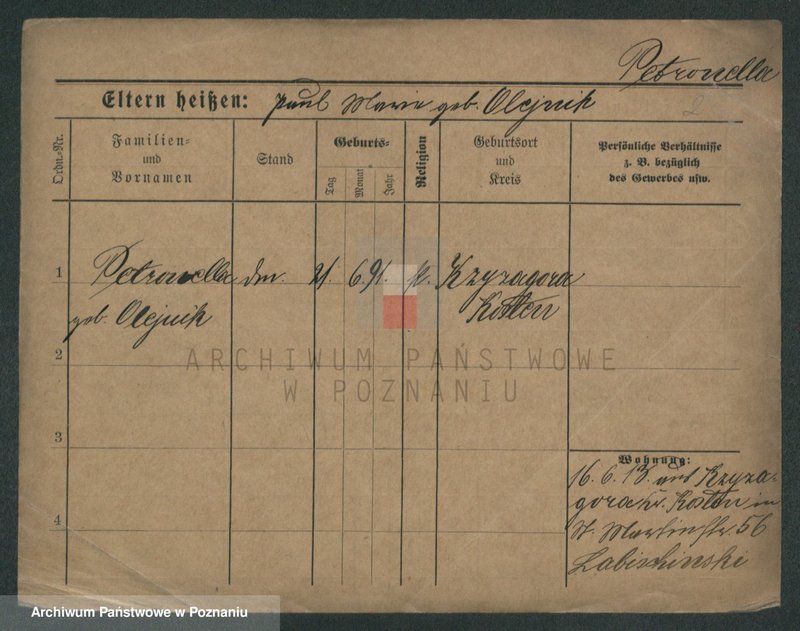 Petronella
Eltern heißen: Paul Marie geb. Olejnik
2
Ordn.-Nr.
Familien- und Vornamen
Stand
Geburts-
Tag
Monat
Jahr
Religion
Geburtsort und Kreis
Persönliche Verhältnisse
z. B. bezüglich
des Gewerbes usw.
1 Petronella 21. 6. 91. k. Krzyzagora
geb. Olejnik Kosten
2
ARCHIWUM PAŃSTWOWE
W POZNANIU
3
Wohnung:
16. 6. 13. aus Krzyza-
gora Kr. Kosten in
St. Martinstr. 56
4
Labischinski
Archiwum Państwowe w Poznaniu